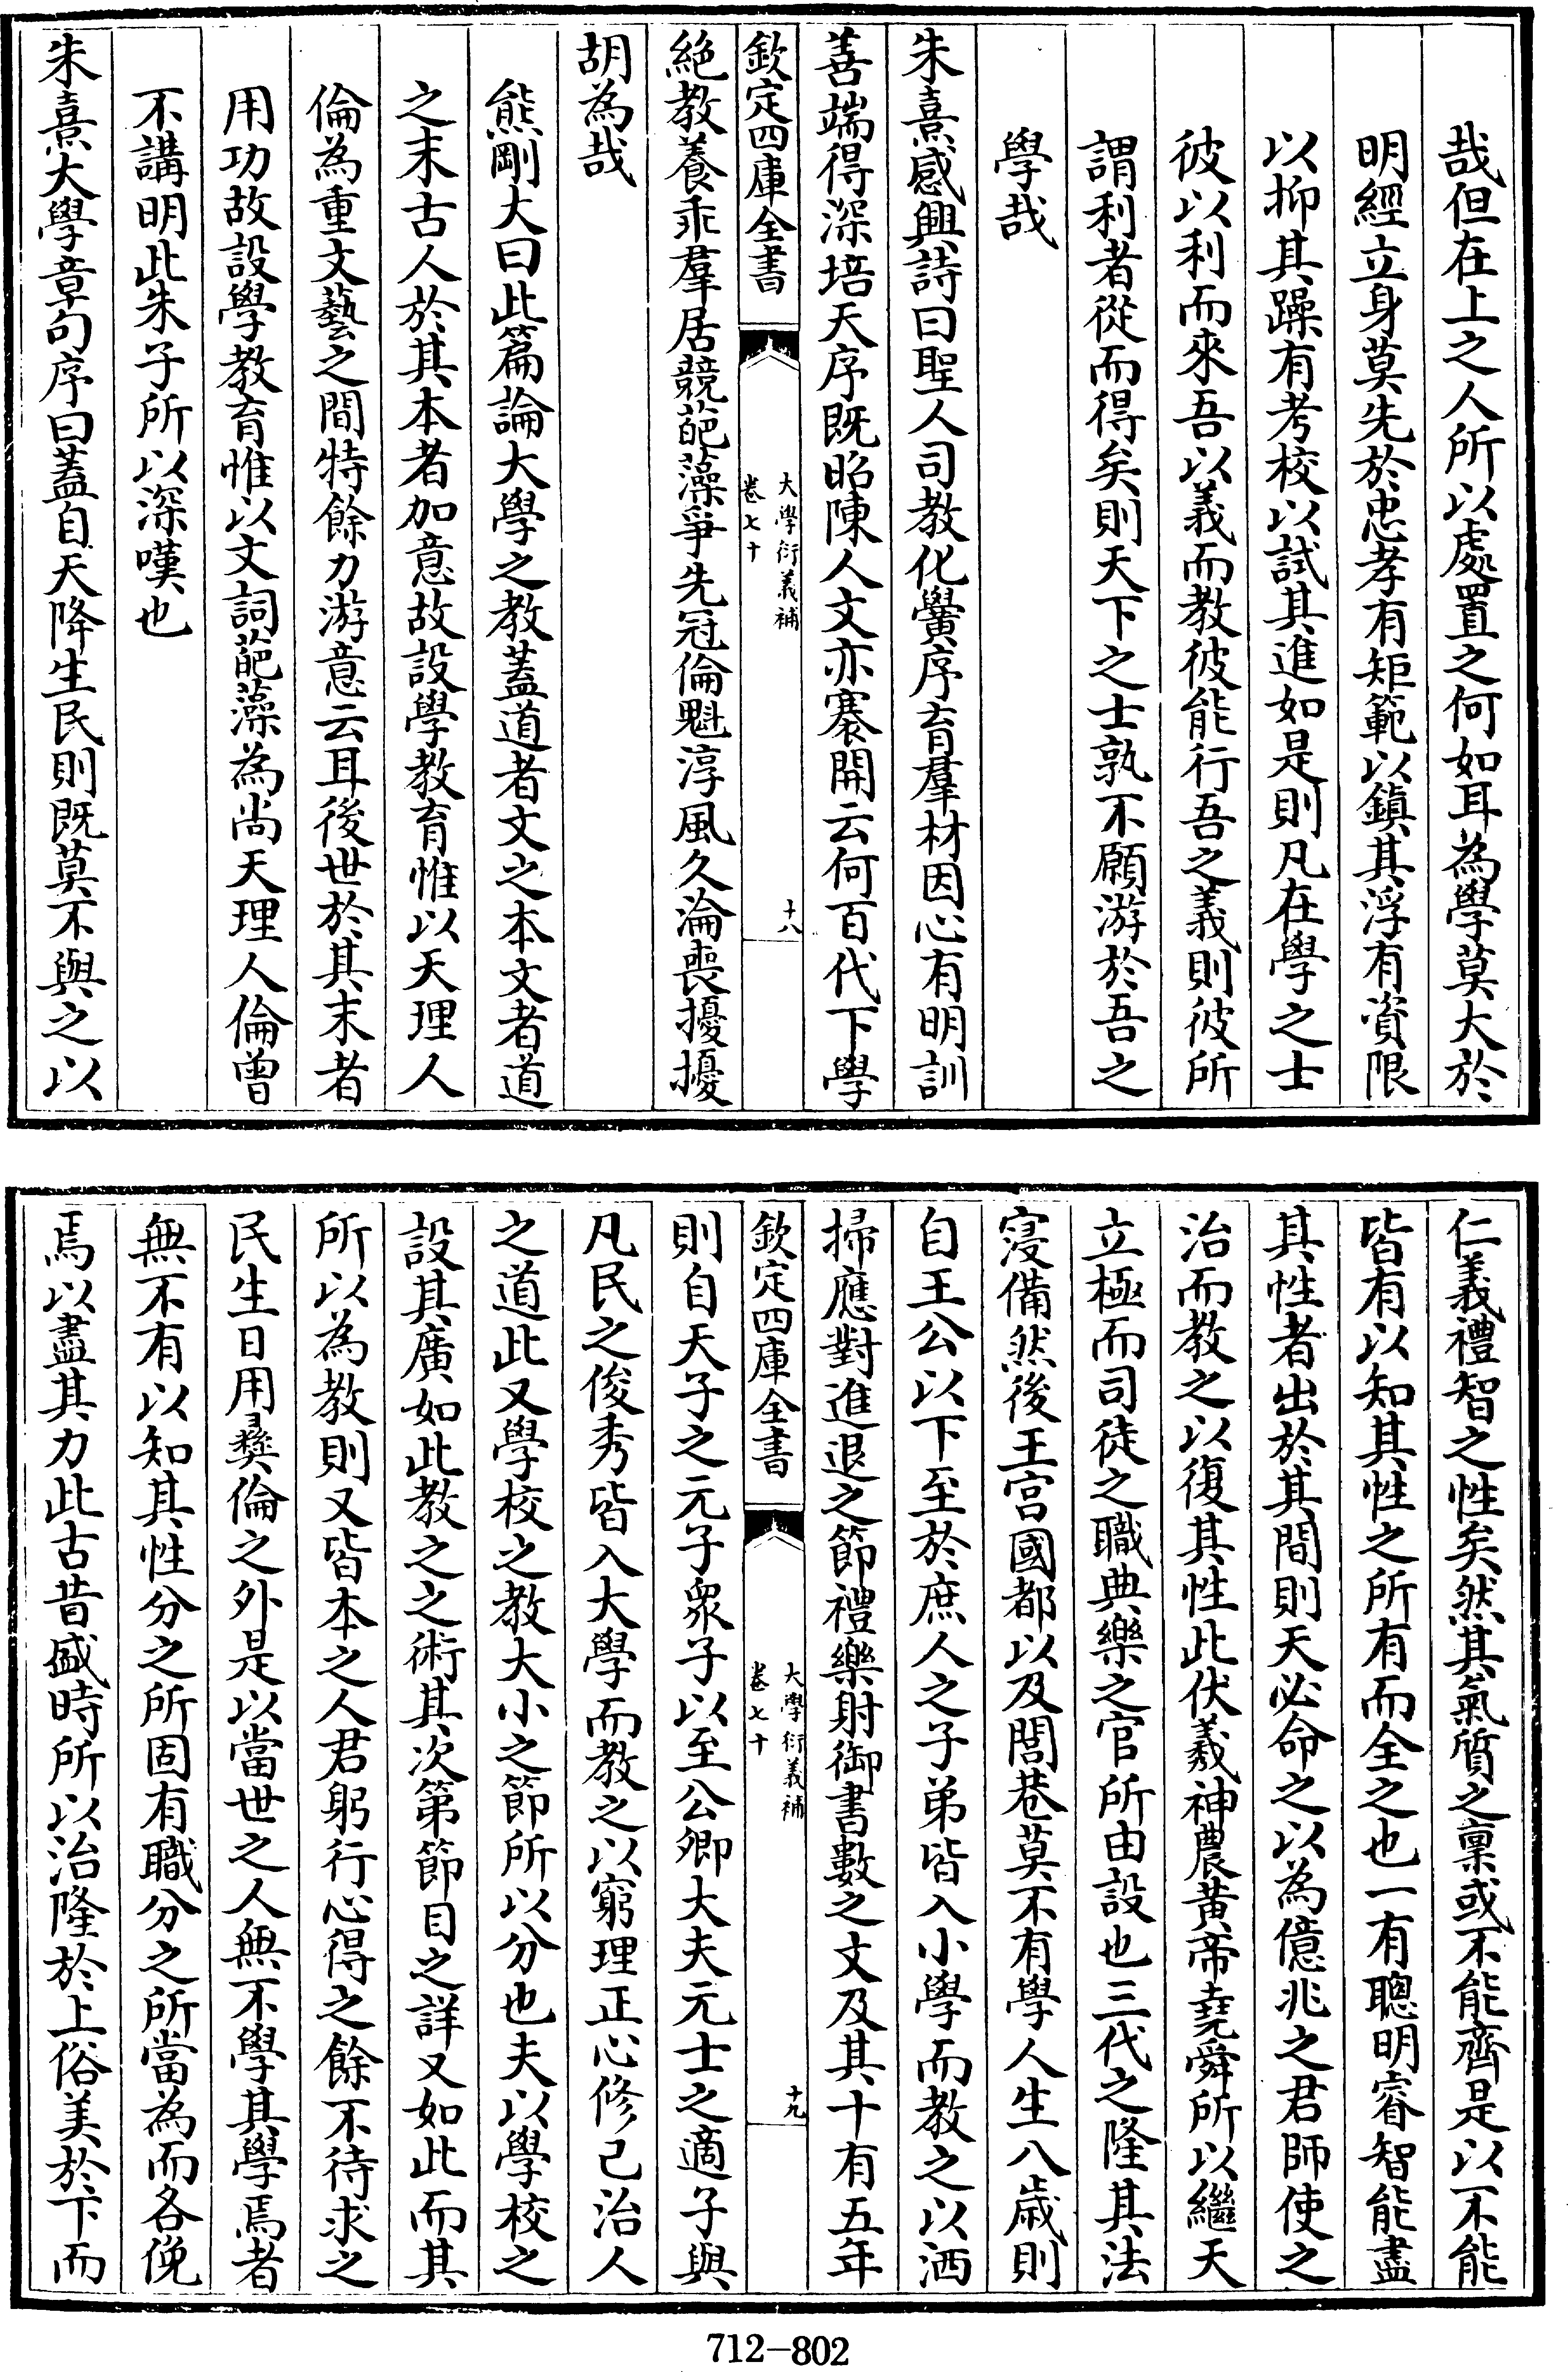 哉但在上之人所以處置之何如耳為學莫大於
明經立身莫先於忠孝有矩範以鎮其浮有資限
以抑其躁有考校以試其進如是則凡在學之士
彼以利而來吾以義而教彼能行吾之義則彼所
謂利者從而得矣則天下之士孰不願游於吾之
學哉
朱熹感興詩曰聖人司教化黌序育羣材因心有明訓
善端得深培天序既昭陳人文亦褰開云何百代下學
欽定四庫全書
大學衍義補
卷七十
十八
絶教養乖羣居競葩藻爭先冠倫魁淳風久淪喪擾擾
胡為哉
熊剛大曰此篇論大學之教蓋道者文之本文者道
之末古人於其本者加意故設學教育惟以天理人
倫為重文藝之間特餘力游意云耳後世於其末者
用功故設學教育惟以文詞葩藻為尚天理人倫曾
不講明此朱子所以深嘆也
朱熹大學章句序曰蓋自天降生民則既莫不與之以
仁義禮智之性矣然其氣質之禀或不能齊是以不能
皆有以知其性之所有而全之也一有聰明睿智能盡
其性者出於其間則天必命之以為億兆之君師使之
治而教之以復其性此伏羲神農黃帝堯舜所以繼天
立極而司徒之職典樂之官所由設也三代之隆其法
寖備然後王宮國都以及閭巷莫不有學人生八歲則
自王公以下至於庶人之子弟皆入小學而教之以洒
掃應對進退之節禮樂射御書數之文及其十有五年
欽定四庫全書
大學衍義補
卷七十
十九
則自天子之元子衆子以至公卿大夫元士之適子與
凡民之俊秀皆入大學而教之以窮理正心修己治人
之道此又學校之教大小之節所以分也夫以學校之
設其廣如此教之之術其次第節目之詳又如此而其
所以為教則又皆本之人君躬行心得之餘不待求之
民生日用彞倫之外是以當世之人無不學其學焉者
無不有以知其性分之所固有職分之所當為而各俛
焉以盡其力此古昔盛時所以治隆於上俗美於下而
712-802